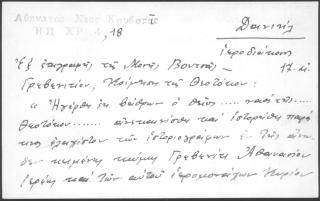 Αθηναγ. Νεος Κουβαρᾶς
ΗΠ ΧΡ 4, 18
Δανιήλ
ἱεροδιάκονος
Ἐξ ἐπιγραφῆς τῆς Μονῆς Βουτσᾶ – 17. αἰ
Γρεβενιτίου, Κοίμησις τῆς Θεοτόκου:
« Ἀγέρθη ἐκ βάθρων ὁ θεῖος .... ναὸς τῆς...
Θεοτόκου ...... ἀνεκαινίσθη καὶ ἱστορίσθη παρὰ
κἀμοῦ ἐλαχίστου τῶν ἱστοριογράφων ἐκ τῆς
κειμένης κώμης Γρεβενίτι Ἀθανασίου
ἱερέως καὶ τῶν αὐτοῦ ἱερομονάχων Κυρίου